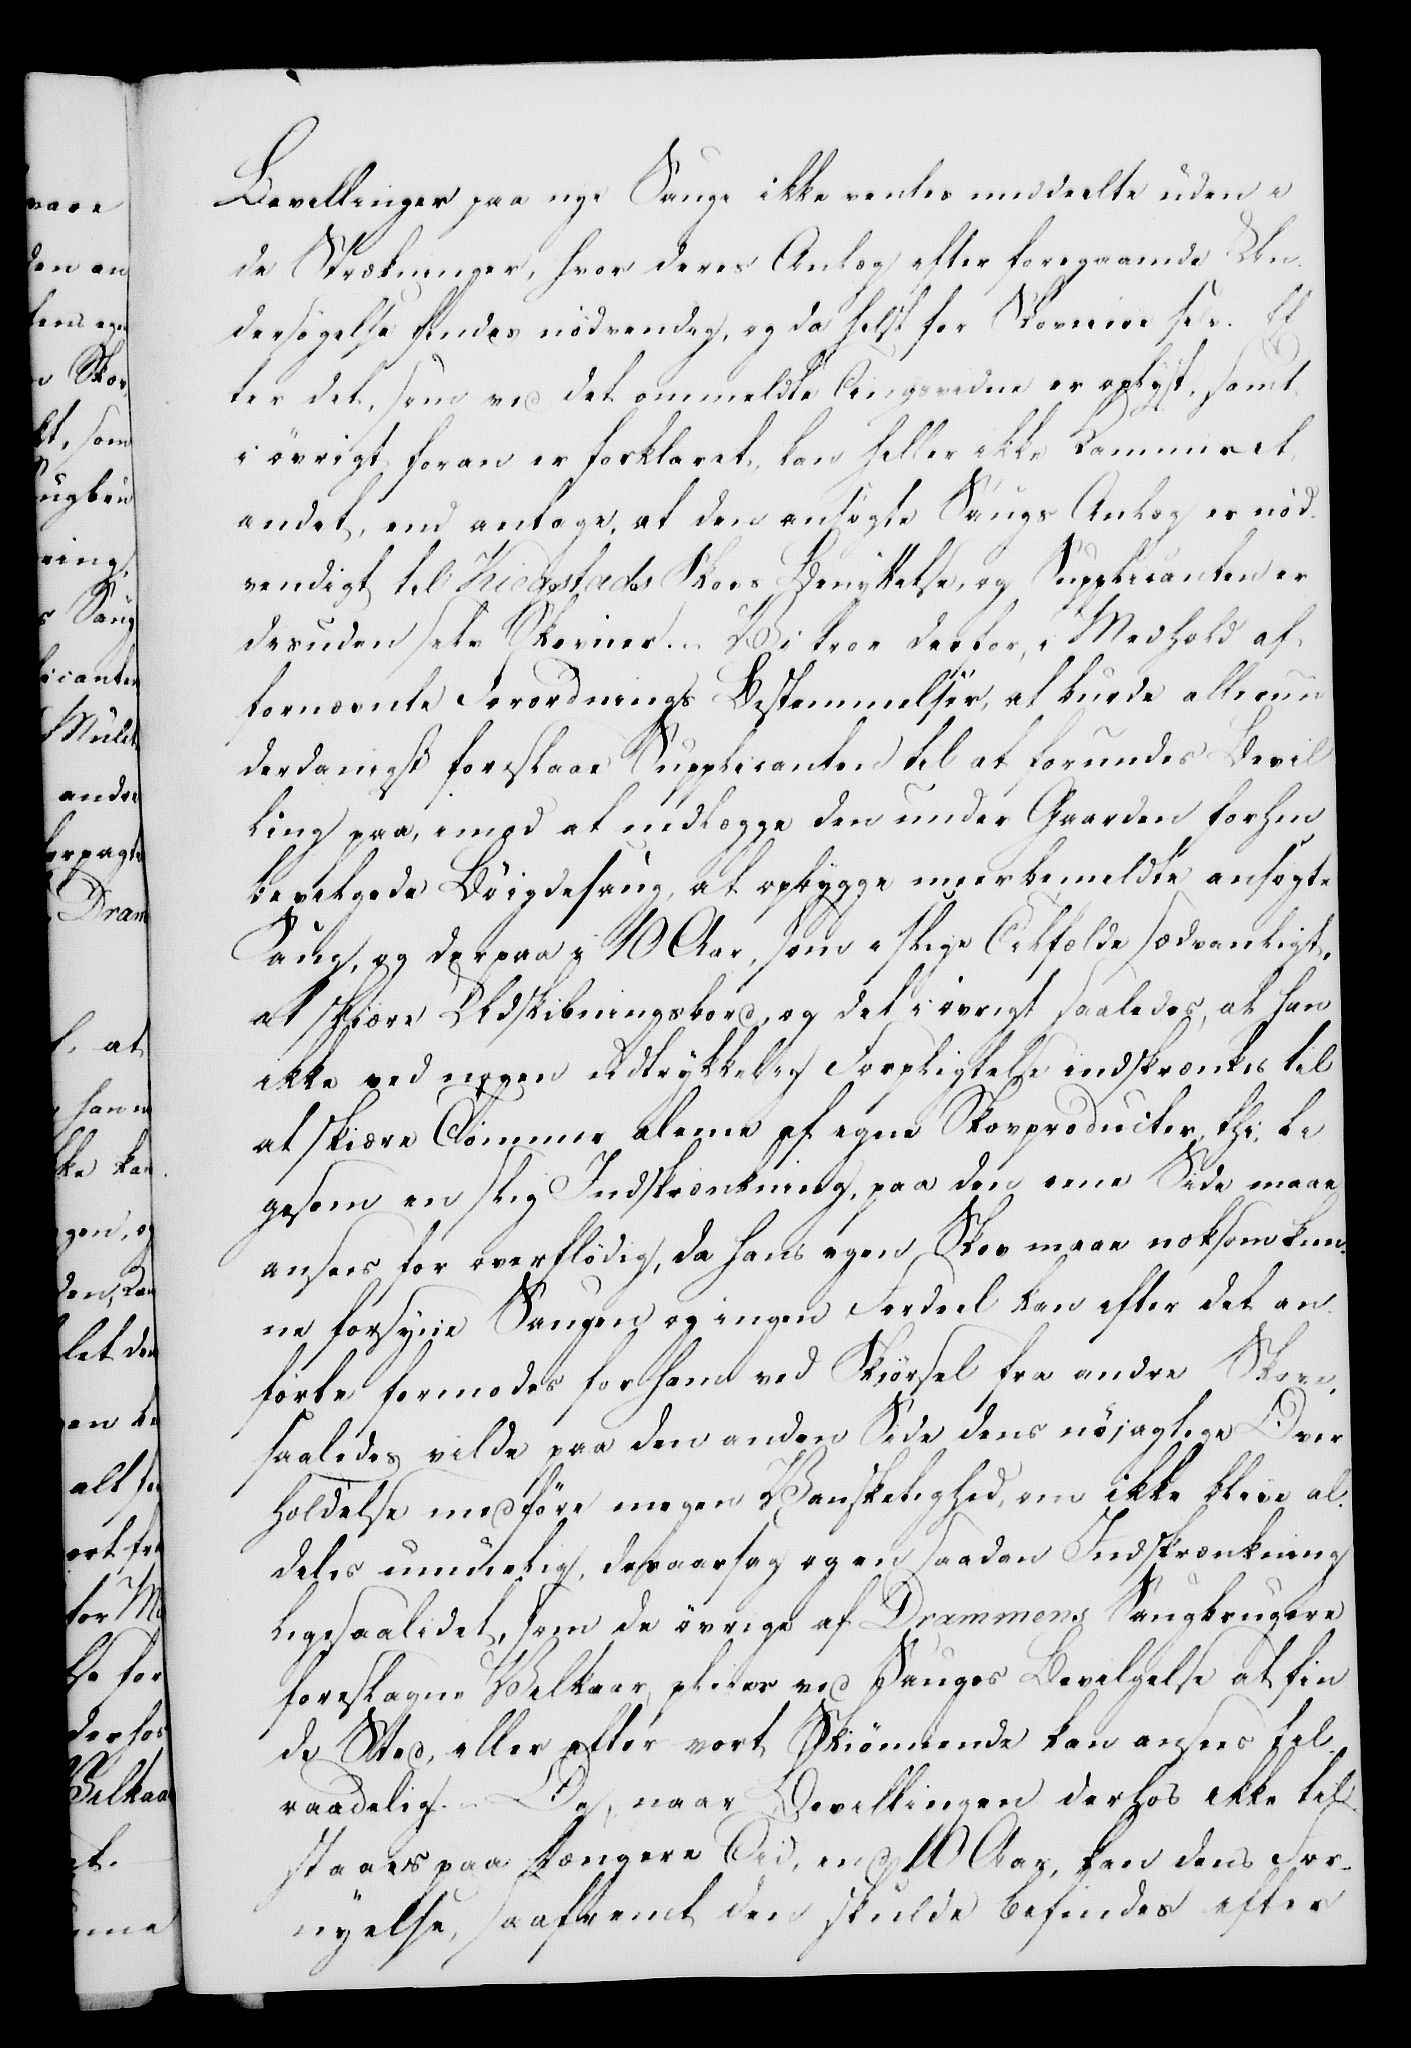 Bevillinger paa nye Sauge ikke ventes meddeelte uden i
de Strækninger, hvor deres Anlæg efter foregaaende Un-
dersøgelse findes nødvendig, og da helst for Skoveiere selv. Ef-
ter det, som ved det ommeldte Tingsvidne er oplyst, samt
i øvrigt foran er forklaret, kan heller ikke Kammeret
andet, end antage, at den ansøgte Saugs Anlæg er nød-
vendigt til Kiegstads Skovs Benyttelse, og Supplicanten er
desuden selv Skoveier. Vi troe derfor, i Medhold af
fornævnte Forordnings Bestemmelser, at burde allerun-
derdanigst foreslaae Supplicanten til at forundes Bevil-
ling paa, imod at nedlægge den under Gaarden forhen
bevilgede Bøigdesaug, at opbygge meerbemeldte ansøgte
Saug, og derpaa i 10 Aar, som i slige Tilfælde sædvanligt,
at skiære Udskibningsbord, og det i øvrigt saaledes, at han
ikke ved nogen udtrykkelig Forpligtelse indskrænkes til
at skiære Tømmer alene af egne Skovproducter, thi, li-
gesom en slig Indskrænkning, paa den eene Side maae
ansees for overflødig, da hans egen Skov maae noksom kun-
ne forsyne Saugen og ingen Fordeel kan efter det an-
førte formodes for ham ved Kiørsel fra andre Skove,
saaledes vilde paa den anden Side dens nøjagtige Over-
holdelse medføre megen Vanskelighed, om ikke blive al-
deles umuelig, desaarsag og en saadan Indskrænkning
ligesaalidet, som de øvrige af Drammens Saugbrugere
foreslagne Vilkaar, pleier ved Sauges Bevilgelse at fin-
de Sted, eller efter vort Skiønnende kan ansees til-
raadelig. Og, naar Bevillingen derhos ikke til-
staaes paa længere Tid, end 10 Aar, kan dens For-
nyelse, saafremt den skulde befindes efter